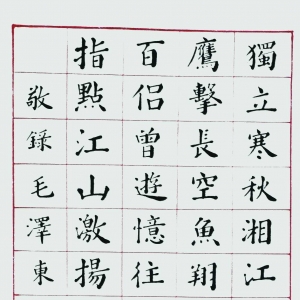 獨立寒秋湘江
鷹擊長空魚翔
百侶曾遊憶往
指點江山激揚
敬錄毛澤東